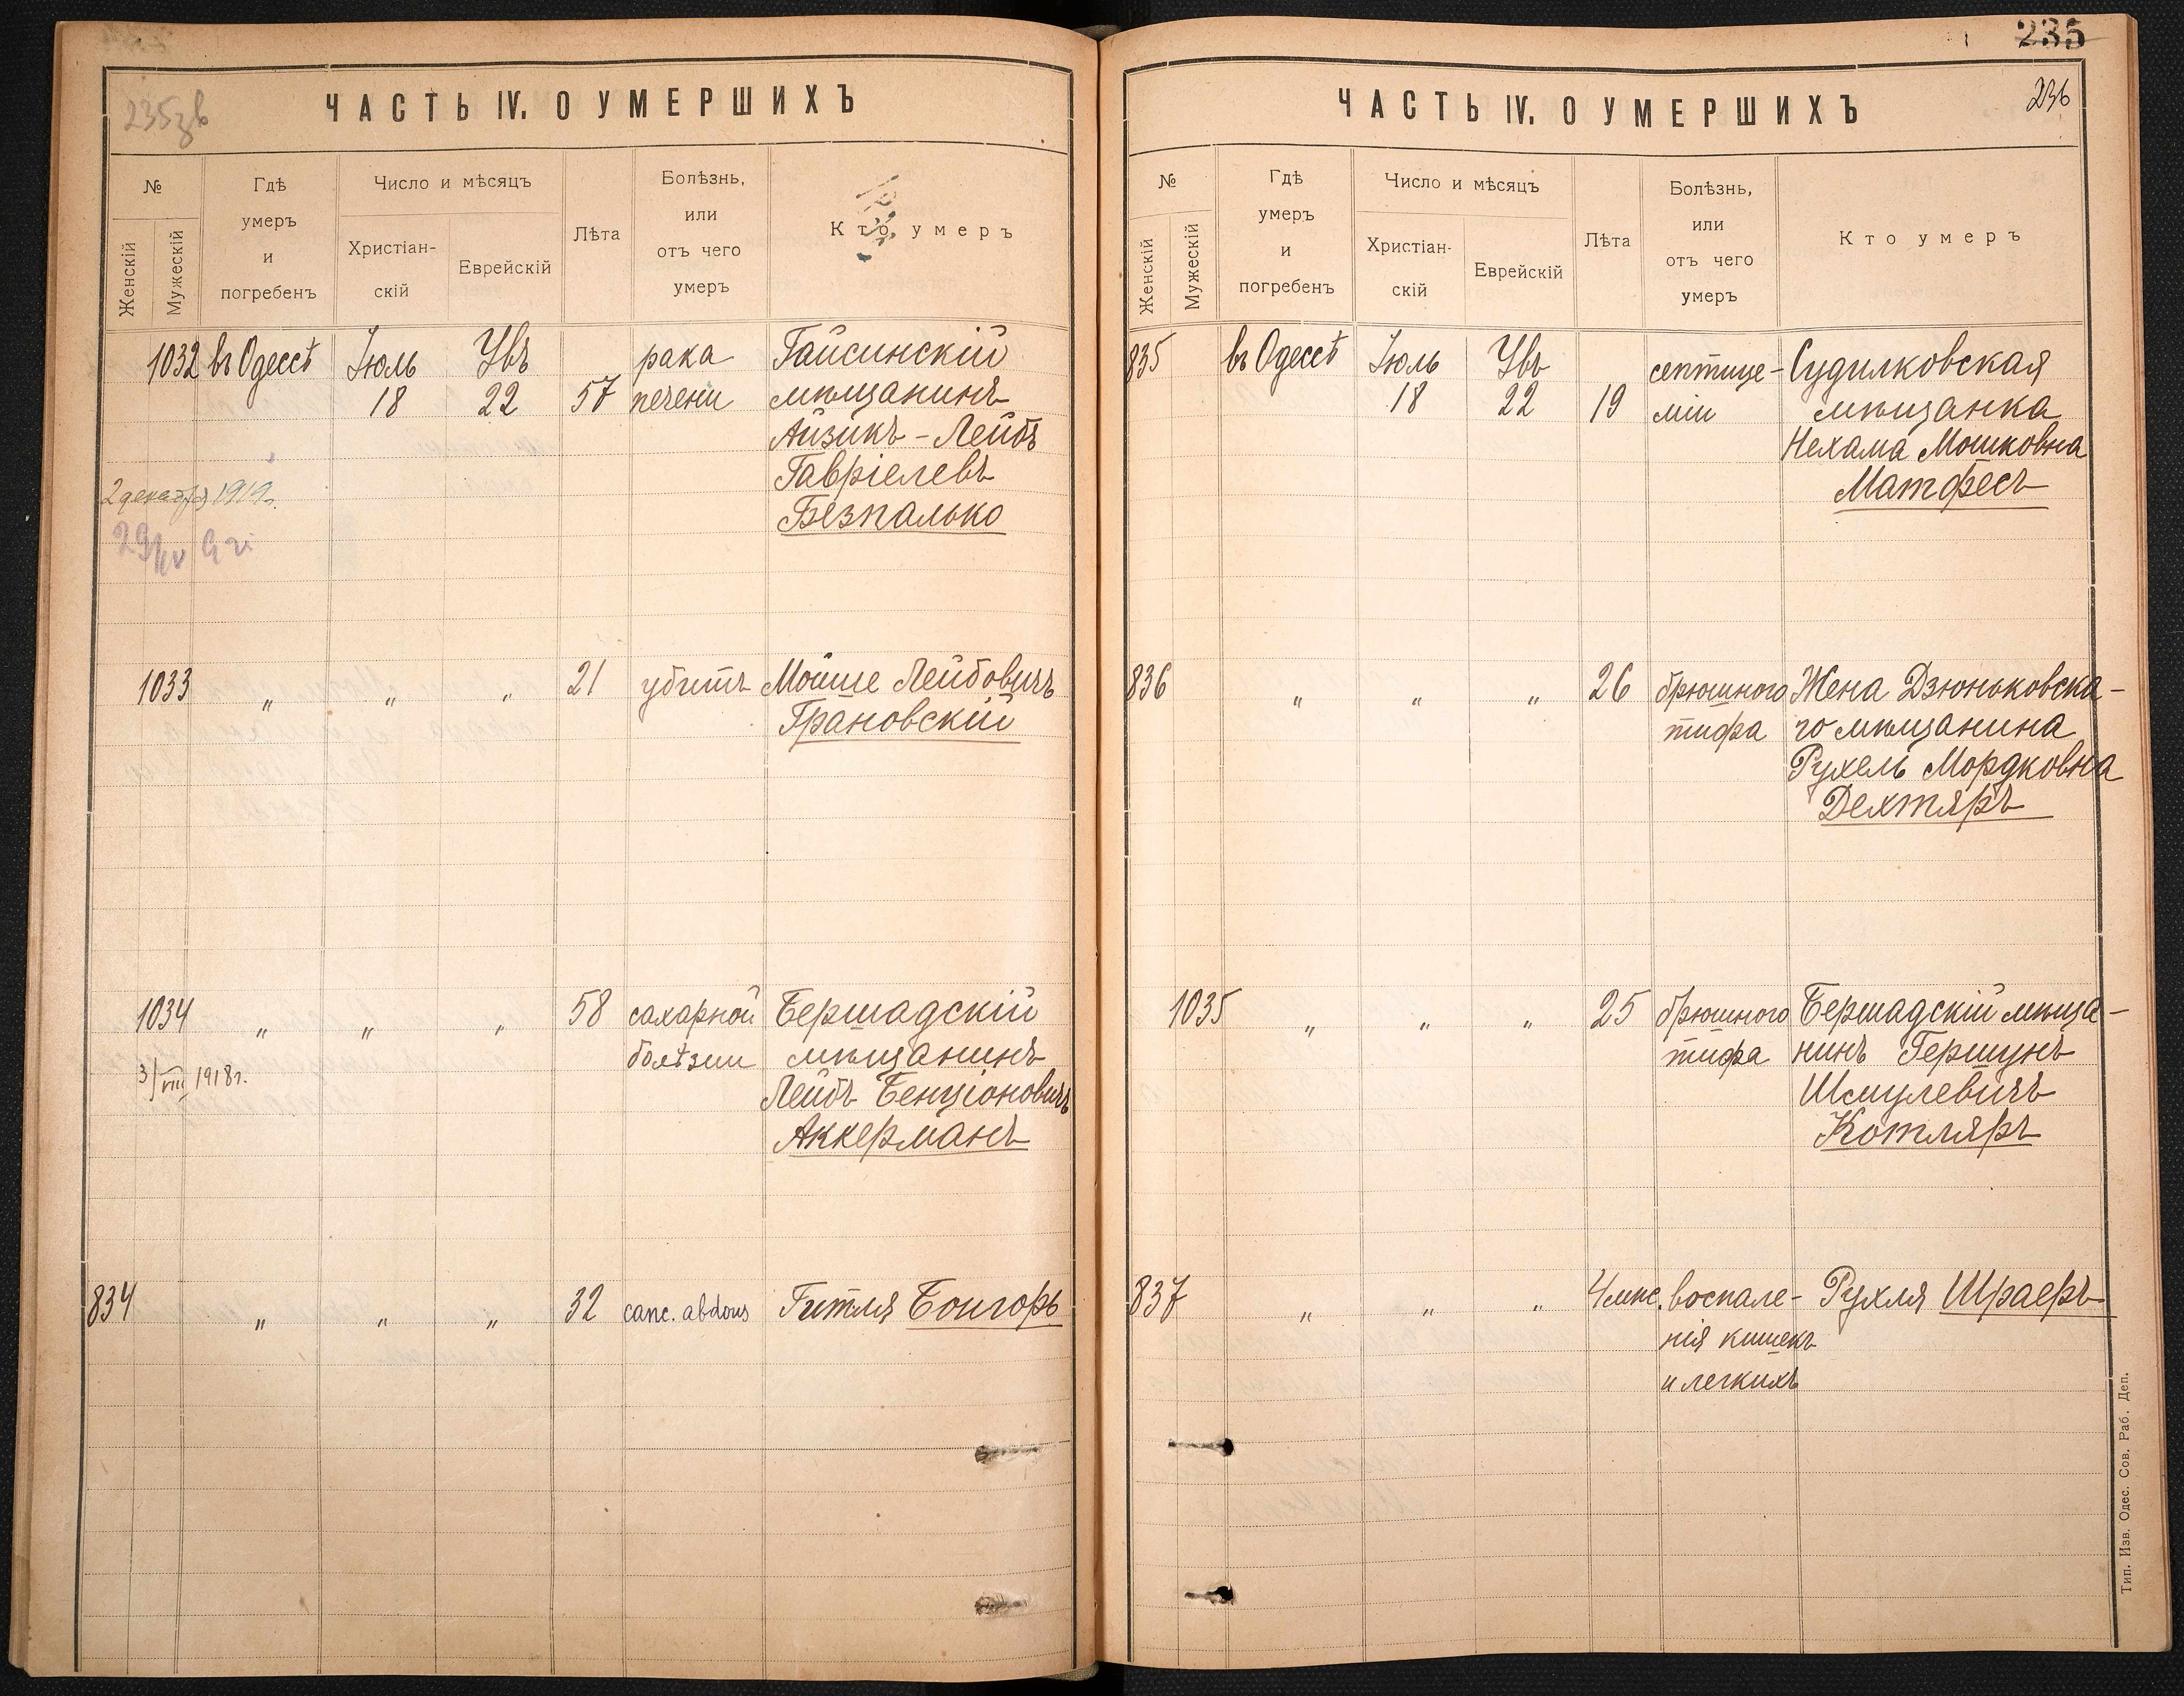 235
235зв
ЧАСТЬ IV. О УМЕРШИХЪ
№
Женскій
Мужескій
Гдѣ
умеръ
и
погребенъ
Число и мѣсяцъ
Христіан-
скій
Еврейскій
Лѣта
Болѣзнь,
или
отъ чего
умеръ
Кто умеръ
1032 въ Одессѣ Іюль Увъ рака Гайсинскій
18 22 57 печени мѣщанинъ
Айзикъ-Лейбъ
Гавріелевъ
Безпалько
2 декабря 1919г.
1033 " " " 21 убитъ Мойше Лейбовичъ
Грановскій
1034 " " " 58 сахарной Бершадскій
болѣзни мѣщанинъ
3/VIII 1918г.
Лейбъ Бенціоновичъ
Аккерманъ
834 " " " 32 canc. abdous Гитля Бонгоръ
236
ЧАСТЬ IV. О УМЕРШИХЪ
№
Женскій
Мужескій
Гдѣ
умеръ
и
погребенъ
Число и мѣсяцъ
Христіан-
скій
Еврейскій
Лѣта
Болѣзнь,
или
отъ чего
умеръ
Кто умеръ
835 въ Одессѣ Іюль Увъ септице- Судилковская
18 22 19 міи мѣщанка
Нехама Мошковна
Матфесъ
836 " " " 26 брюшного Жена Дзюньковска-
тифа го мѣщанина
Рухель Мордковна
Дехтяръ
1035 " " " 25 брюшного Бершадскій мѣща-
тифа нинъ Гершунъ
Шмулевичъ
Котляръ
837 " " " 4 мѣс. воспале- Рухля Шраеръ
нія кишекъ
и легкихъ
Тип. Изв. Одес. Сов. Раб. Деп.